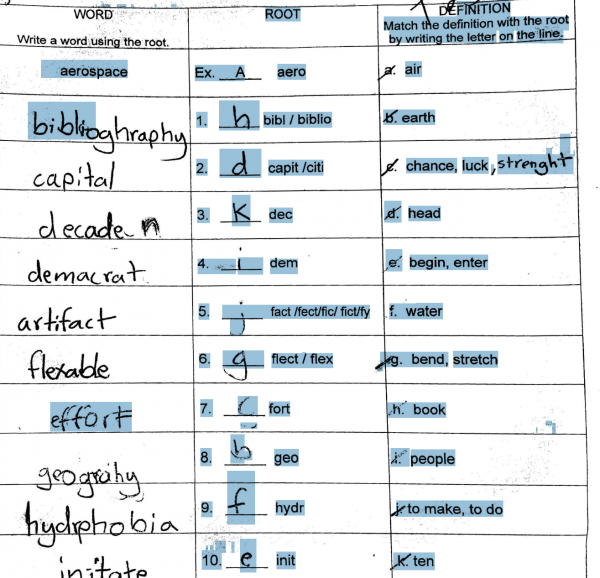 WORD ROOT DEFINITION
Write a word using the root. Match the definition with the root by writing the letter on the line.
aerospace Ex. A aero a. air
biblioghraphy 1. h bibl / biblio b. earth
capital 2. d capit /citi c. chance, luck, strenght
decade n 3. K dec d. head
demacrat 4. i dem e. begin, enter
artifact 5. j fact /fect/fic/ fict/fy f. water
flexable 6. g flect / flex g. bend, stretch
effort 7. c fort h. book
8. b geo i. people
hydrphobia 9. f hydr j to make, to do
initate 10. e init k. ten